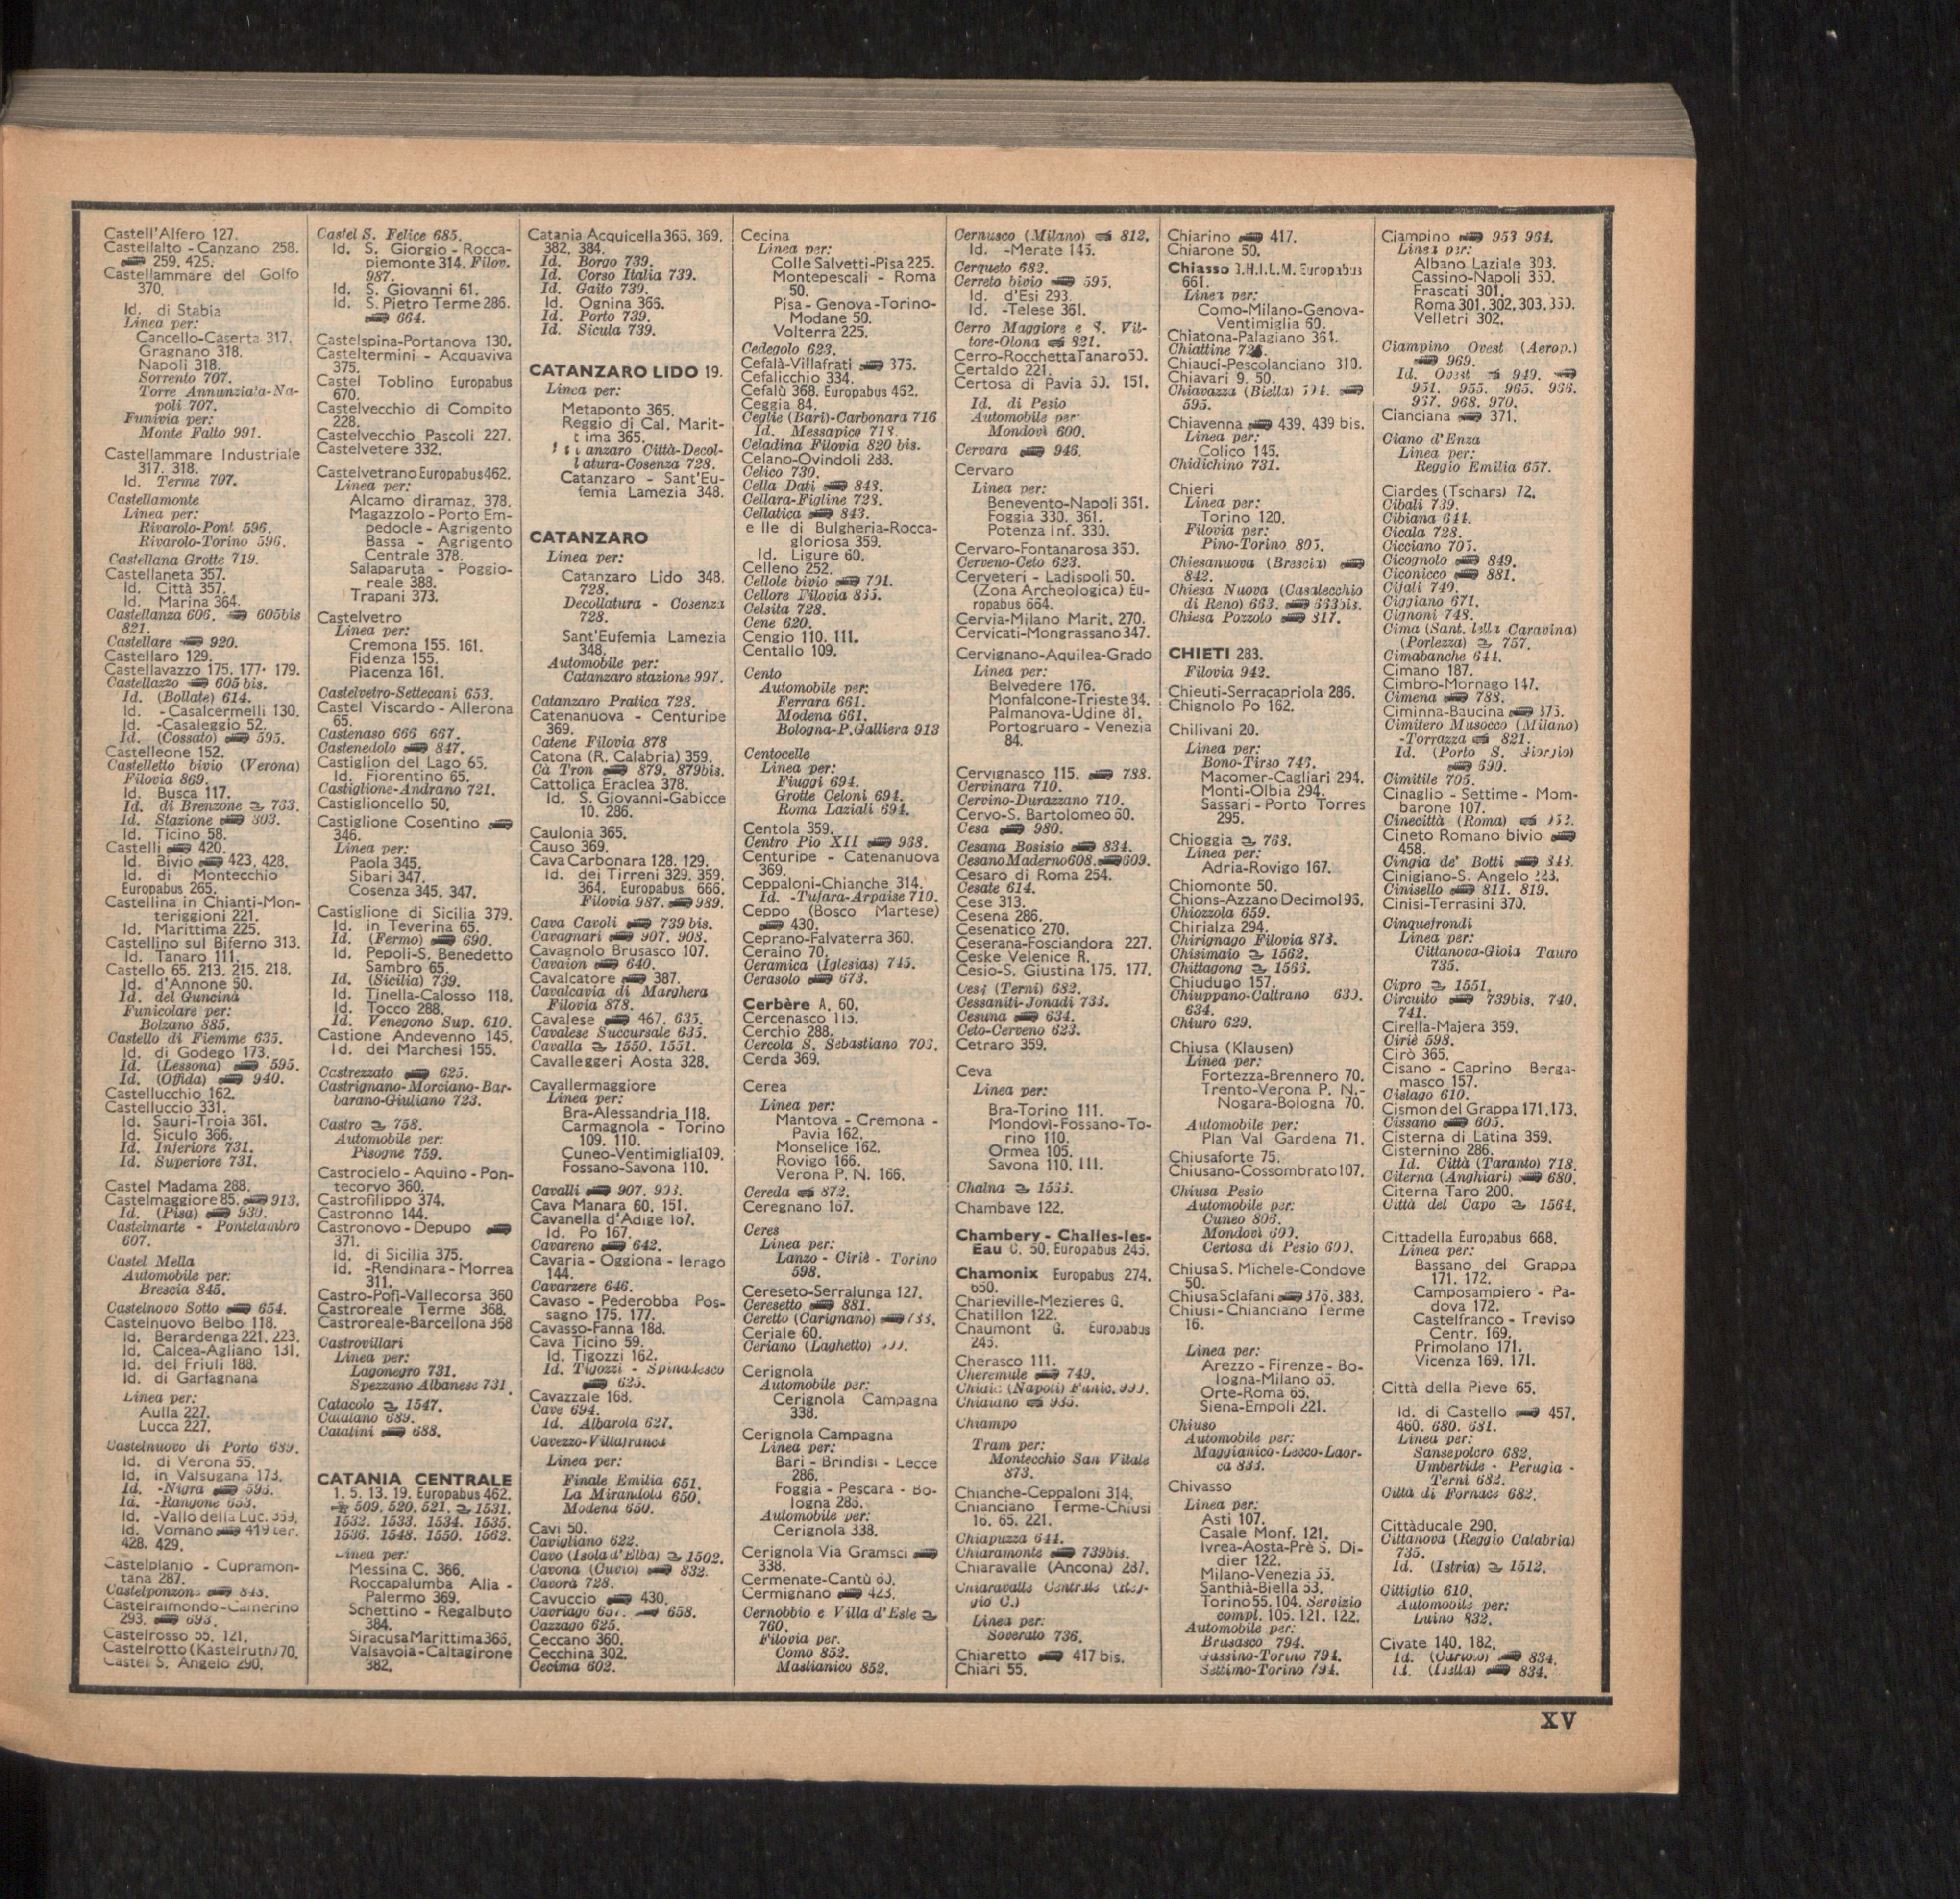 Castell'Alfero 127.
Castellalto - Canzano 258.
259, 425.
Castellammare del Golfo
370.
Id. di Stabia
Linea per:
Cancello-Caserta 317.
Gragnano 318.
Napoli 318.
Sorrento 707.
Torre Annunziata-Na-
poli 707.
Funivia per:
Monte Faito 991.
Castellammare Industriale
317. 318.
Id. Terme 707.
Castellamonte
Linea per:
Rivarolo-Pont 596.
Rivarolo-Torino 596.
Castellana Grotte 719.
Castellaneta 357.
Id. Città 357.
Id. Marina 364.
Castellanza 606. 605bis
821.
Castellare 920.
Castellaro 129.
Castellavazzo 175. 177. 179.
Castellazzo 605 bis.
Id. (Bollate) 614.
Id. - Casalcermelli 130.
Id. -Casaleggio 52.
Id. (Cossato) 595.
Castelleone 152.
Castelletto bivio (Verona)
Filovia 869.
Id. Busca 117.
Id. di Brenzone 763.
Id. Stazione 803.
Id. Ticino 58.
Castelli 420.
Id. Bivio 423, 428.
Id. di Montecchio
Europabus 265.
Castellina in Chianti-Mon-
teriggioni 221.
Id. Marittima 225.
Castellino sul Biferno 313.
Id. Tanaro 111.
Castello 65. 213. 215. 218.
Id. d'Annone 50.
Id. del Guncinà
Funicolare per:
Bolzano 885.
Castello di Fiemme 635.
Id. di Godego 173.
Id. (Lessona) 595.
Id. (Offida) 940.
Castellucchio 162.
Castelluccio 331.
Id. Sauri-Troia 361.
Id. Siculo 366.
Id. Inferiore 731.
Id. Superiore 731.
Castel Madama 288.
Castelmaggiore 85. 913.
Id. (Pisa) 930.
Castelmarte - Pontelambro
607.
Castel Mella
Automobile per:
Brescia 845.
Castelnovo Sotto 654.
Castelnuovo Belbo 118.
Id. Berardenga 221. 223.
Id. Calcea-Agliano 131.
Id. del Friuli 188.
Id. di Garfagnana
Linea per:
Aulla 227.
Lucca 227.
Castelnuovo di Porto 689.
Id. di Verona 55.
Id. in Valsugana 173.
Id. -Nigra 595.
Id. -Rangone 653.
Id. -Vallo della Luc. 359.
Id. Vomano 419 ter.
428. 429.
Castelplanio - Cupramon-
tana 287.
Castelponzone 843.
Castelraimondo-Camerino
293. 693
Castelrosso 55. 121.
Castelrotto (Kastelruth) 70.
Castel S. Angelo 290.
Castel S. Felice 685.
Id. S. Giorgio - Rocca-
piemonte 314. Filov.
987.
Id. S. Giovanni 61.
Id. S. Pietro Terme 286.
664.
Castelspina-Portanova 130.
Casteltermini - Acquaviva
375.
Castel Toblino Europabus
670.
Castelvecchio di Compito
228.
Castelvecchio Pascoli 227.
Castelvetere 332.
Castelvetrano Europabus 462.
Linea per:
Alcamo diramaz. 378.
Magazzolo - Porto Em-
pedocle - Agrigento
Bassa - Agrigento
Centrale 378.
Salaparuta - Poggio-
reale 388.
Trapani 373.
Castelvetro
Linea per:
Cremona 155. 161.
Fidenza 155.
Piacenza 161.
Castelvetro-Settecani 653.
Castel Viscardo - Allerona
65.
Castenaso 666 667.
Castenedolo 847.
Castiglion del Lago 65.
Id. Fiorentino 65.
Castiglione-Andrano 721.
Castiglioncello 50.
Castiglione Cosentino
346.
Linea per:
Paola 345.
Sibari 347.
Cosenza 345. 347.
Castiglione di Sicilia 379.
Id. in Teverina 65.
Id. (Fermo) 690.
Id. Pepoli-S. Benedetto
Sambro 65.
Id. (Sicilia) 739.
Id. Tinella-Calosso 118.
Id. Tocco 288.
Id. Venegono Sup. 610.
Castione Andevenno 145.
Id. dei Marchesi 155.
Castrezzato 625.
Castrignano-Morciano-Bar-
barano-Giuliano 723.
Castro 758.
Automobile per:
Pisogne 759.
Castrocielo - Aquino - Pon-
tecorvo 360.
Castrofilippo 374.
Castronno 144.
Castronovo - Depupo
371.
Id. di Sicilia 375.
Id. -Rendinara - Morrea
311.
Castro-Pofi-Vallecorsa 360
Castroreale Terme 368.
Castroreale-Barcellona 368
Castrovillari
Linea per:
Lagonegro 731.
Spezzano Albanese 731.
Catacolo 1547.
Cataiano 689.
Catalini 688.
CATANIA CENTRALE
1. 5. 13. 19. Europabus 462.
509. 520. 521. 1531.
1532. 1533. 1534. 1535.
1536. 1548. 1550. 1562.
Linea per:
Messina C. 366.
Roccapalumba Alia -
Palermo 369.
Schettino - Regalbuto
384.
Siracusa Marittima 366.
Valsavoia-Caltagirone
382.
Catania Acquicella 366. 369.
382. 384.
Id. Borgo 739.
Id. Corso Italia 739.
Id. Gaito 739.
Id. Ognina 366.
Id. Porto 739.
Id. Sicula 739.
CATANZARO LIDO 19.
Linea per:
Metaponto 365.
Reggio di Cal. Marit-
tima 365.
Catanzaro Città-Decol-
latura-Cosenza 728.
Catanzaro - Sant'Eu-
femia Lamezia 348.
CATANZARO
Linea per:
Catanzaro Lido 348.
728.
Decollatura - Cosenza
728.
Sant'Eufemia Lamezia
348.
Automobile per:
Catanzaro stazione 997.
Catanzaro Pratica 728.
Catenanuova - Centuripe
369.
Catene Filovia 878
Catona (R. Calabria) 359.
Cà Tron 879. 879bis.
Cattolica Eraclea 378.
Id. S. Giovanni-Gabicce
10. 286.
Caulonia 365.
Causo 369.
Cava Carbonara 128. 129.
Id. dei Tirreni 329. 359.
364. Europabus 666.
Filovia 987. 989.
Cava Cavoli 739 bis.
Cavagnari 907. 908.
Cavagnolo Brusasco 107.
Cavaion 640.
Cavalcatore 387.
Cavalcavia di Marghera
Filovia 878.
Cavalese 467. 635.
Cavalese Succursale 635.
Cavalla 1550. 1551.
Cavalleggeri Aosta 328.
Cavallermaggiore
Linea per:
Bra-Alessandria 118.
Carmagnola - Torino
109. 110.
Cuneo-Ventimiglia 109.
Fossano-Savona 110.
Cavalli 907. 993.
Cava Manara 60. 151.
Cavanella d'Adige 167.
Id. Po 167.
Cavareno 642.
Cavaria - Oggiona - Ierago
144.
Cavarzere 646.
Cavaso - Pederobba Pos-
sagno 175. 177.
Cavasso-Fanna 188.
Cava Ticino 59.
Id. Tigozzi 162.
Id. Tigozzi - Spinadesco
625.
Cavazzale 168.
Cave 694.
Id. Albarola 627.
Cavezzo-Villafranca
Linea per:
Finale Emilia 651.
La Mirandola 650.
Modena 650.
Cavi 50.
Cavigliano 622.
Cavo (Isola d'Elba) 1502.
Cavona (Cuvio) 832.
Cavorà 728.
Cavuccio 430.
Cavriago 657. 658.
Cazzago 625.
Ceccano 360.
Cecchina 302.
Cecima 602.
Cecina
Linea per:
Colle Salvetti-Pisa 225.
Montepescali - Roma
50.
Pisa - Genova - Torino-
Modane 50.
Volterra 225.
Cedegolo 623.
Cefalà-Villafrati 375.
Cefalicchio 334.
Cefalù 368. Europabus 462.
Ceggia 84.
Ceglie (Bari)-Carbonara 716
Id. Messapico 718
Celadina Filovia 820 bis.
Celano-Ovindoli 288.
Celico 730.
Cella Dati 843.
Cellara-Figline 728.
Cellatica 843.
e lle di Bulgheria-Rocca-
gloriosa 359.
Id. Ligure 60.
Celleno 252.
Cellole bivio 701.
Cellore Filovia 865.
Celsita 728.
Cene 620.
Cengio 110. 111.
Centallo 109.
Cento
Automobile per:
Ferrara 661.
Modena 661.
Bologna-P. Galliera 913
Centocelle
Linea per:
Fiuggi 694.
Grotte Celoni 694.
Roma Laziali 694.
Centola 359.
Centro Pio XII 968.
Centuripe - Catenanuova
369.
Ceppaloni-Chianche 314.
Id. -Tufara-Arpaise 710.
Ceppo (Bosco Martese)
430.
Ceprano-Falvaterra 360.
Ceraino 70.
Ceramica (Iglesias) 745.
Cerasolo 673.
Cerbère A. 60.
Cercenasco 115.
Cerchio 288.
Cercola S. Sebastiano 706.
Cerda 369.
Cerea
Linea per:
Mantova - Cremona -
Pavia 162.
Monselice 162.
Rovigo 166.
Verona P. N. 166.
Cereda 872.
Ceregnano 167.
Ceres
Linea per:
Lanzo - Ciriè - Torino
598.
Cereseto-Serralunga 127.
Ceresetto 881.
Ceretto (Carignano)
Ceriale 60.
Ceriano (Laghetto)
Cerignola
Automobile per:
Cerignola Campagna
338.
Cerignola Campagna
Linea per:
Bari - Brindisi - Lecce
286.
Foggia - Pescara - Bo-
logna 286.
Automobile per:
Cerignola 338.
Cerignola Via Gramsci
338.
Cermenate-Cantù 60.
Cermignano 423.
Cernobbio e Villa d'Este
760.
Filovia per.
Como 852.
Maslianico 852.
Cernusco (Milano) 812.
Id. -Merate 145.
Cerqueto 682.
Cerreto bivio 595.
Id. d'Esi 293.
Id. -Telese 361.
Cerro Maggiore e S. Vit-
tore-Olona 821.
Cerro-Rocchetta Tanaro 50.
Certaldo 221.
Certosa di Pavia 50. 151.
Id. di Pesio
Automobile per:
Mondovì 600.
Cervara 946.
Cervaro
Linea per:
Benevento-Napoli 361.
Foggia 330. 361.
Potenza Inf. 330.
Cervaro-Fontanarosa 350.
Cerveno-Ceto 623.
Cerveteri - Ladispoli 50.
(Zona Archeologica) Eu-
ropabus 664.
Cervia-Milano Marit. 270.
Cervicati-Mongrassano 347.
Cervignano-Aquilea-Grado
Linea per:
Belvedere 176.
Monfalcone-Trieste 84.
Palmanova-Udine 81.
Portogruaro - Venezia
84.
Cervignasco 115. 788.
Cervinara 710.
Cervino-Durazzano 710.
Cervo-S. Bartolomeo 60.
Cesa 980.
Cesana Bosisio 834.
Cesano Maderno 608. 609.
Cesaro di Roma 254.
Cesate 614.
Cese 313.
Cesena 286.
Cesenatico 270.
Ceserana-Fosciandora 227.
Ceske Velenice R.
Cesio-S. Giustina 175. 177.
Cesi (Terni) 682.
Cessaniti-Jonadi 733.
Cesuna 634.
Ceto-Cerveno 623.
Cetraro 359.
Ceva
Linea per:
Bra-Torino 111.
Mondovì-Fossano-To-
rino 110.
Ormea 105.
Savona 110. 111.
Chalna 1533.
Chambave 122.
Chambery - Challes-les-
Eau C. 50. Europabus 245.
Chamonix Europabus 274.
650.
Charleville-Mezieres G.
Chatillon 122.
Chaumont G. Europabus
245.
Cherasco 111.
Cheremule 749.
Chiaia (Napoli) Funic.
Chiaiano 985.
Chiampo
Tram per:
Montecchio San Vitale
873.
Chianche-Ceppaloni 314.
Chianciano Terme-Chiusi
16. 65. 221.
Chiapuzza 644.
Chiaramonte 739bis.
Chiaravalle (Ancona) 287.
Chiaravalle Centrale (Reg-
gio C.)
Linea per:
Soverato 736.
Chiaretto 417 bis.
Chiari 55.
Chiarino 417.
Chiarone 50.
Chiasso B.H.I.L.M. Europabus
661.
Linea per:
Como-Milano-Genova-
Ventimiglia 60.
Chiatona-Palagiano 364.
Chiattine
Chiauci-Pescolanciano 310.
Chiavari 9. 50.
Chiavazza (Biella)
595.
Chiavenna 439. 439 bis.
Linea per:
Colico 145.
Chidichino 731.
Chieri
Linea per:
Torino 120.
Filovia per:
Pino-Torino 805.
Chiesanuova (Brescia)
842.
Chiesa Nuova (Casalecchio
di Reno) 663. 663bis.
Chiesa Pozzolo 817.
CHIETI 283.
Filovia 942.
Chieuti-Serracapriola 286.
Chignolo Po 162.
Chilivani 20.
Linea per:
Bono-Tirso 746.
Macomer-Cagliari 294.
Monti-Olbia 294.
Sassari - Porto Torres
295.
Chioggia 768.
Linea per:
Adria-Rovigo 167.
Chiomonte 50.
Chions-Azzano Decimo 196.
Chiozzola 659.
Chirialza 294.
Chirignago Filovia 878.
Chisimaio 1562.
Chittagong 1563.
Chiudugo 157.
Chiuppano-Caltrano 630.
634.
Chiuro 629.
Chiusa (Klausen)
Linea per:
Fortezza-Brennero 70.
Trento-Verona P. N.-
Nogara-Bologna 70.
Automobile per:
Plan Val Gardena 71.
Chiusaforte 75.
Chiusano-Cossombrato 107.
Chiusa Pesio
Automobile per:
Cuneo 806.
Mondovì 600.
Certosa di Pesio 600.
Chiusa S. Michele-Condove
50.
Chiusa Sclafani 376. 383.
Chiusi - Chianciano Terme
16.
Linea per:
Arezzo - Firenze - Bo-
logna-Milano 65.
Orte-Roma 65.
Siena-Empoli 221.
Chiuso
Automobile per:
Maggianico-Lecco-Laor-
ca 833.
Chivasso
Linea per:
Asti 107.
Casale Monf. 121.
Ivrea-Aosta-Prè S. Di-
dier 122.
Milano-Venezia 55.
Santhià-Biella 53.
Torino 55. 104. Servizio
compl. 105. 121. 122.
Automobile per:
Brusasco 794.
Gassino-Torino 794.
Settimo-Torino 794.
Ciampino 953 964.
Linea per:
Albano Laziale 303.
Cassino-Napoli 360.
Frascati 301.
Roma 301. 302. 303. 360.
Velletri 302.
Ciampino Ovest (Aerop.)
969.
Id. Ovest 949.
951. 955. 965. 966.
967. 968. 970.
Cianciana 371.
Ciano d'Enza
Linea per:
Reggio Emilia 657.
Ciardes (Tschars) 72.
Cibali 739.
Cibiana 644.
Cicala 728.
Cicciano 705.
Cicognolo 849.
Ciconicco 881.
Cifali 740.
Ciggiano 671.
Cignoni 748.
Cima (Sant. della Caravina)
(Porlezza) 757.
Cimabanche 644.
Cimano 187.
Cimbro-Mornago 147.
Cimena 788.
Ciminna-Baucina 375.
Cimitero Musocco (Milano)
-Torrazza 821.
Id. (Porto S. Giorgio)
690.
Cimitile 705.
Cinaglio - Settime - Mom-
barone 107.
Cinecittà (Roma) 952.
Cineto Romano bivio
458.
Cingia de' Botti 843.
Cinigiano-S. Angelo 223.
Cinisello 811. 819.
Cinisi-Terrasini 370.
Cinquefrondi
Linea per:
Cittanova-Gioia Tauro
735.
Cipro 1551.
Circuito 739bis. 740.
741.
Cirella-Majera 359.
Ciriè 598.
Cirò 365.
Cisano - Caprino Berga-
masco 157.
Cislago 610.
Cismon del Grappa 171. 173.
Cissano 605.
Cisterna di Latina 359.
Cisternino 286.
Id. Città (Taranto) 718.
Citerna (Anghiari) 680.
Citerna Taro 200.
Città del Capo 1564.
Cittadella Europabus 668.
Linea per:
Bassano del Grappa
171. 172.
Camposampiero - Pa-
dova 172.
Castelfranco - Treviso
Centr. 169.
Primolano 171.
Vicenza 169. 171.
Città della Pieve 65.
Id. di Castello 457.
460. 680. 681.
Linea per:
Sansepolcro 682.
Umbertide - Perugia -
Terni 682.
Città di Fornace 682.
Cittàducale 290.
Cittanova (Reggio Calabria)
735.
Id. (Istria) 1512.
Cittiglio 610.
Automobile per:
Luino 832.
Civate 140. 182.
Id. (Cariolo) 834.
Id. (Isella) 834.
XV